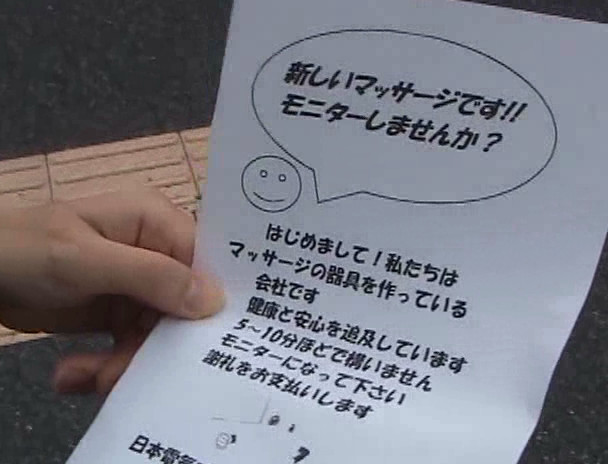 新しいマッサージです!!
モニターしませんか？
はじめまして！私たちは
マッサージの器具を作っている
会社です
健康と安心を追及しています
5～10分ほどで構いません
モニターになって下さい
謝礼をお支払いします
日本電気